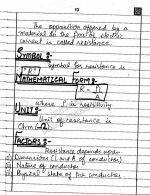 The opposition offered by a
material to the flow of electric
current is called resistance.
SYMBOL :-
Symbol for resistance is
"R"
MATHEMATICAL FORM :-
R = ρ L/A
where ρ is resistivity
UNIT :-
Unit of resistance is
Ohm (Ω)
FACTORS :-
Resistance depends upon
Dimensions (L and A of conductor)
Nature of conductor
Physical state of the conductor